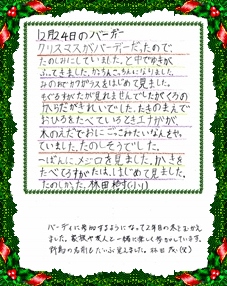 12月24日のバーダー
クリスマスがバーデーだったので、
たのしみにしていました。と中でゆきが
ふってきました。からんこらんになりました。
みのおでカワガラスをはじめて見ました。
もぐるすがたが見れませんでしたがくろの
からだがきれいでした。たきのまえで
おひるをたべているときユナガが、
木のえだでおにごっこみたいなんをやっ
ていました。たのしそうでした。
いっぱんにメジロを見ました。かきを
たべてるすがたは、はじめて見ました。
たのしかった。 林田
バーディに参加するようになって2年目の冬をむかえ
ました。家族や友人と一緒に楽しく歩かせています。
野鳥の名前もだいぶ覚えました。林田